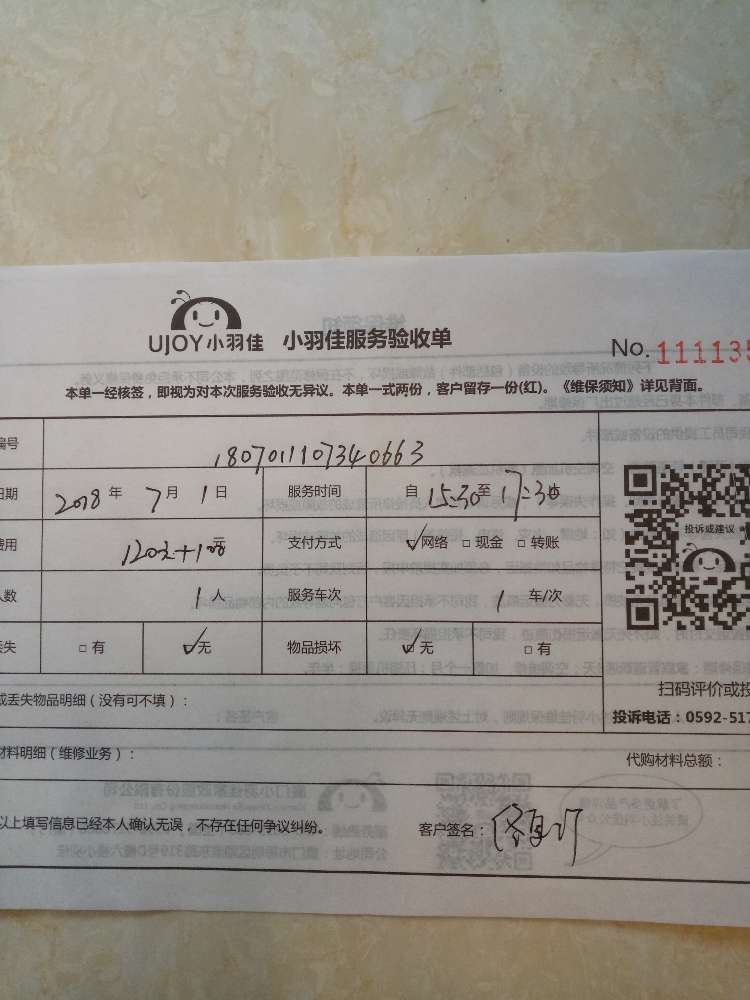 UJOY小羽佳 小羽佳服务验收单
No. 111135
本单一经核签，即视为对本次服务验收无异议。本单一式两份，客户留存一份(红)。《维保须知》详见背面。
编号 180701110734 0663
日期 2018 年 7 月 1 日 服务时间 自 15:30 至 17:30
费用 120元+1元 支付方式 ✓网络 □ 现金 □ 转账
人数 1 人 服务车次 1 车/次
丢失 □ 有 ✓无 物品损坏 ✓无 □ 有
投诉或建议
扫码评价或投
投诉电话：0592-517
或丢失物品明细（没有可不填）：
材料明细（维修业务）：
代购材料总额：
以上填写信息已经本人确认无误，不存在任何争议纠纷。
客户签名：